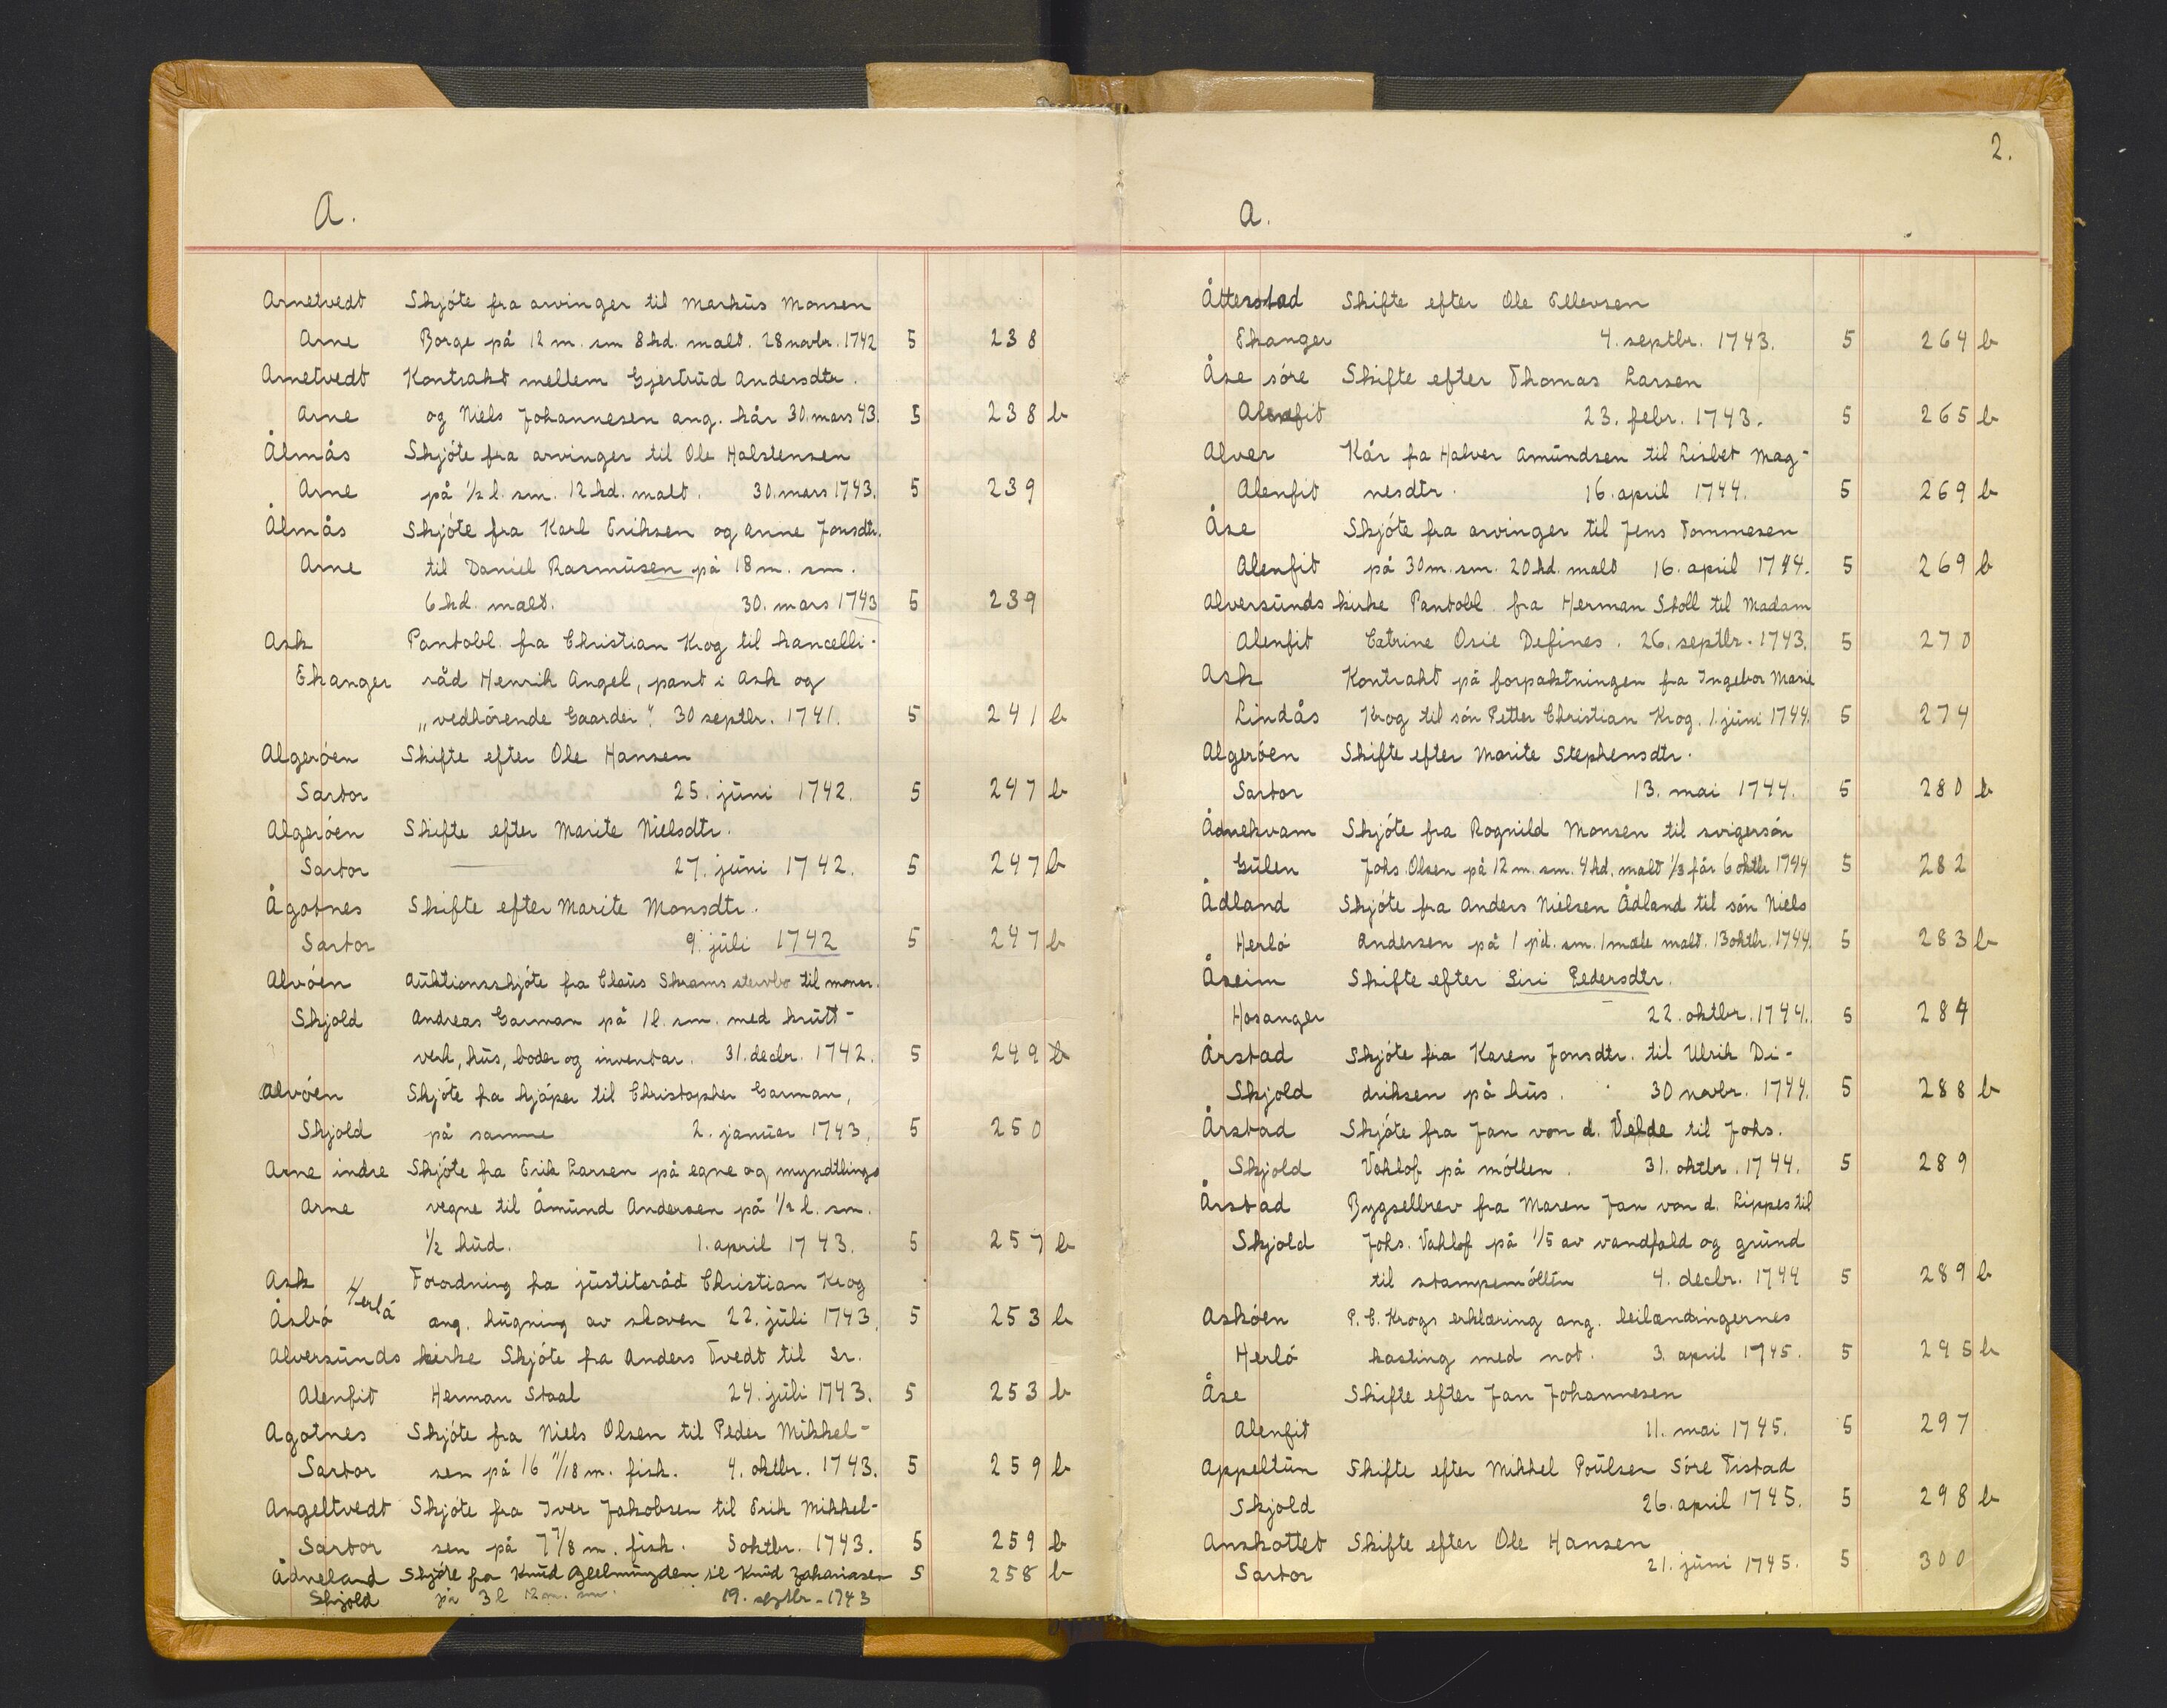 A.
Arnetvedt Skjóte fra arvinger til Markus Monsen
Arne Borge på 12 m. sm 8 hd. malt. 28 novbr. 1742 5 238
Arnetvedt Kontrakt mellem Gjertrud Andersdtr.
Arne og Niels Johannesen ang. kår 30. mars 43. 5 238 b
Ålmås Skjóte fra arvinger til Ole Halstensen
Arne på ½ l. sm. 12 hd. malt. 30. mars 1743. 5 239
Ålmås Skjóte fra Karl Eriksen og Anne Jonsdtr.
Arne til Daniel Rasmusen på 18 m. sm.
6 hd. malt. 30. mars 1743 5 239
Ask Pantobl. fra Christian Krog til kancelli-
Ekanger råd Henrik Angel, pant i Ask og
„vedhórende Gaarder". 30 septbr. 1741. 5 241 b
Algeróen Skifte efter Ole Hansen
Sartor 25. juni 1742. 5 247 b
Algeróen Skifte efter Marite Nielsdtr.
Sartor 27. juni 1742. 5 247 b
Ågotnes Skifte efter Marite Monsdtr.
Sartor 9. juli 1742 5 247 b
Alvóen Auktionsskjóte fra Claus Skrams stervbo til monsr.
Skjold Andreas Garman på 1 l. sm. med krutt-
verk, hus, boder og inventar. 31. decbr. 1742. 5 249 b
Alvóen Skjóte fra kjóper til Christopher Garman,
Skjold på samme 2. januar 1743. 5 250
Arne indre Skjóte fra Erik Larsen på egne og myndtlings
Arne vegne til Åmund Andersen på ½ l. sm.
½ hud. 1. april 1743. 5 257 b
Ask Forordning fra justitsråd Christian Krog
Åsbó Herló ang. hugning av skoven 22. juli 1743. 5 253 b
Alversunds kirke Skjóte fra Anders Tvedt til Sr.
Alenfit Herman Staal 24. juli 1743. 5 253 b
Agotnes Skjóte fra Niels Olsen til Peder Mikkel-
Sartor sen på 16 11/18 m. fisk. 4. oktbr. 1743. 5 259 b
Angeltvedt Skjóte fra Iver Jakobsen til Erik Mikkel-
Sartor sen på 7 7/8 m. fisk. 5 oktbr. 1743. 5 259 b
Ådneland Skjóte fra Knud Geelmuyden til Knud Zakariasen 5 258 b
Skjold på 3 l 12 m. sm. 19. septbr. 1743
2.
A.
Åtterstad Skifte efter Ole Ellevsen
Ekanger 4. septbr. 1743. 5 264 b
Åse sóre Skifte efter Thomas Larsen
Alenfit 23. febr. 1743. 5 265 b
Alver Kår fra Halver Amundsen til Lisbet Mag-
Alenfit nesdtr. 16. april 1744. 5 269 b
Åse Skjóte fra arvinger til Jens Tommesen
Alenfit på 30 m. sm. 20 hd. malt 16. april 1744. 5 269 b
Alversunds kirke Pantobl. fra Herman Stoll til Madam
Alenfit Catrine Osie Defines. 26. septbr. 1743. 5 270
Ask Kontrakt på forpaktningen fra Ingebor Marie
Lindås Krog til són Petter Christian Krog. 1. juni 1744. 5 274
Algeróen Skifte efter Marite Stephensdtr.
Sartor 13. mai 1744. 5 280 b
Ådnekvam Skjóte fra Rognild Monsen til svigersón
Gulen Johs. Olsen på 12 m. sm. 4 hd. malt ⅓ får 6 oktbr 1744 5 282
Ådland Skjóte fra Anders Nielsen Ådland til són Niels
Herló Andersen på 1 pd. sm. 1 mæle malt. 13 oktbr. 1744. 5 283 b
Åseim Skifte efter Siri Pedersdtr.
Hosanger 22. oktbr. 1744. 5 284
Årstad Skjóte fra Karen Jonsdtr. til Ulrik Di-
Skjold driksen på hus. 30 novbr. 1744. 5 288 b
Årstad Skjóte fra Jan von d. Velde til Johs.
Skjold Vahlof på móllen. 31. oktbr. 1744. 5 289
Årstad Bygselbrev fra Maren Jan von d. Lippes til
Skjold Johs. Vahlof på 1/5 av vandfald og grund
til stampemóllen 4. decbr. 1744 5 289 b
Askóen P. C. Krogs erklæring ang. leilændingernes
Herló kasting med not. 3. april 1745. 5 295 b
Åse Skifte efter Jan Johannesen
Alenfit 11. mai 1745. 5 297
Appeltun Skifte efter Mikkel Poulsen Sóre Tistad
Skjold 26. april 1745. 5 298 b
Anskottet Skifte efter Ole Hansen
Sartor 21. juni 1745. 5 300